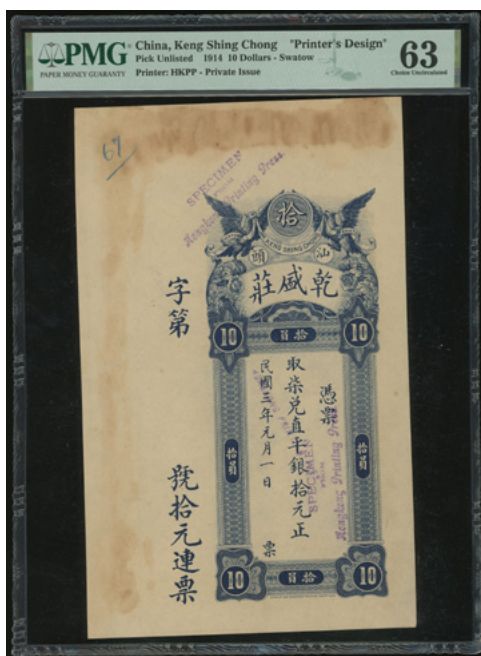 PMG
PAPER MONEY GUARANTY
China, Keng Shing Chong "Printer's Design"
Pick Unlisted 1914 10 Dollars - Swatow
Printer: HKPP - Private Issue
63
Choice Uncirculated
67
SPECIMEN
Hongkong Printing Press
拾
KENG SHING CHONG
汕
頭
乾盛莊
10
拾員
10
憑票
取柒兑直平銀拾元正
民國三年元月一日
票
拾員
拾員
SPECIMEN
Hongkong Printing Press
10
拾員
10
字第
號拾元連票